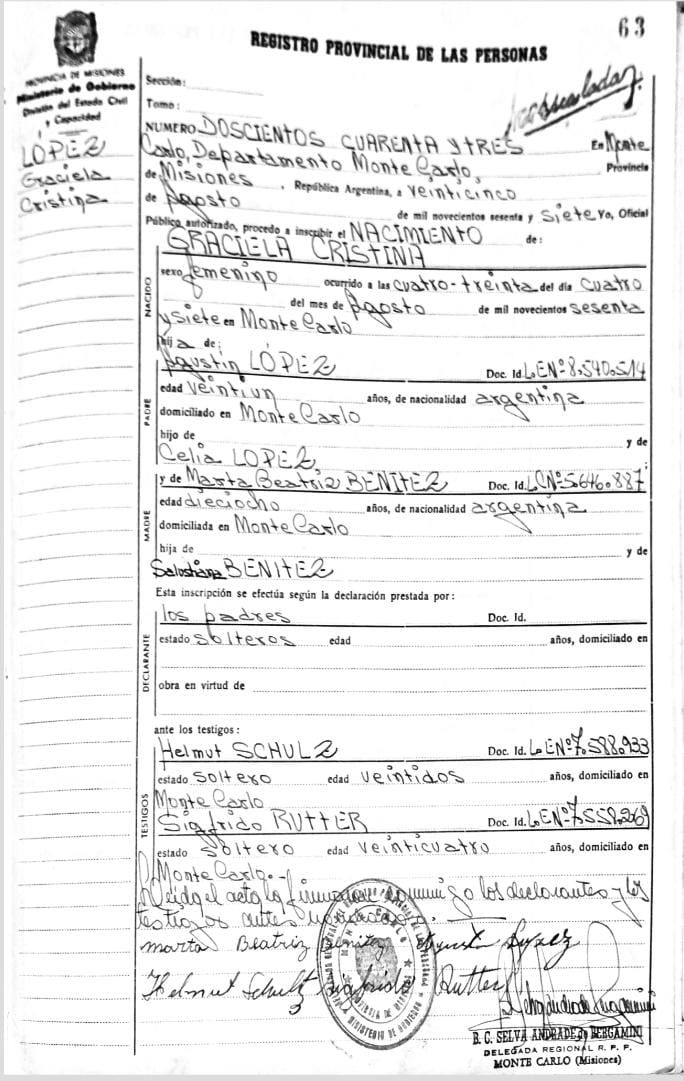 63
REGISTRO PROVINCIAL DE LAS PERSONAS
PROVINCIA DE MISIONES
Ministerio de Gobierno
División del Estado Civil
y Capacidad
LÓPEZ
Graciela
Cristina
Sección:
Tomo:
NUMERO DOSCIENTOS CUARENTA Y TRES En Monte
Carlo, Departamento Monte Carlo, Provincia
de Misiones, República Argentina, a veinticinco
de Agosto de mil novecientos sesenta y siete yo, Oficial
Público autorizado, procedo a inscribir el NACIMIENTO de:
GRACIELA CRISTINA
NACIDO
sexo femenino ocurrido a las cuatro-treinta del día cuatro
del mes de Agosto de mil novecientos sesenta
y siete en Monte Carlo
hija de:
PADRE
Agustín LÓPEZ Doc. Id. L.E.Nº 8.540.514
edad veintiun años, de nacionalidad argentina
domiciliado en Monte Carlo
hijo de y de
Celia LOPEZ
MADRE
y de Marta Beatriz BENITEZ Doc. Id. LC Nº 5.646.887
edad dieciocho años, de nacionalidad argentina
domiciliada en Monte Carlo
hija de y de
BENITEZ
Esta inscripción se efectúa según la declaración prestada por:
DECLARANTE
los padres Doc. Id.
estado solteros edad años, domiciliado en
obra en virtud de
ante los testigos:
TESTIGOS
Helmut SCHULZ Doc. Id. L.E.Nº 7.588.933
estado soltero edad veintidos años, domiciliado en
Monte Carlo
Sigfrido RUTTER Doc. Id. L.E.Nº 7.558.269
estado soltero edad veinticuatro años, domiciliado en
Monte Carlo.-
Leida el acta la firman conmigo los declarantes y los
testigos antes
marta Beatriz Benitez Agustin Lopez
Helmut Schulz Sigfrido Rutter
MONTE CARLO
PROVINCIA DE MISIONES
MINISTERIO DE GOBIERNO
B. C. SELVA ANDRADE de BERGAMINI
DELEGADA REGIONAL R. P. P.
MONTE CARLO (Misiones)